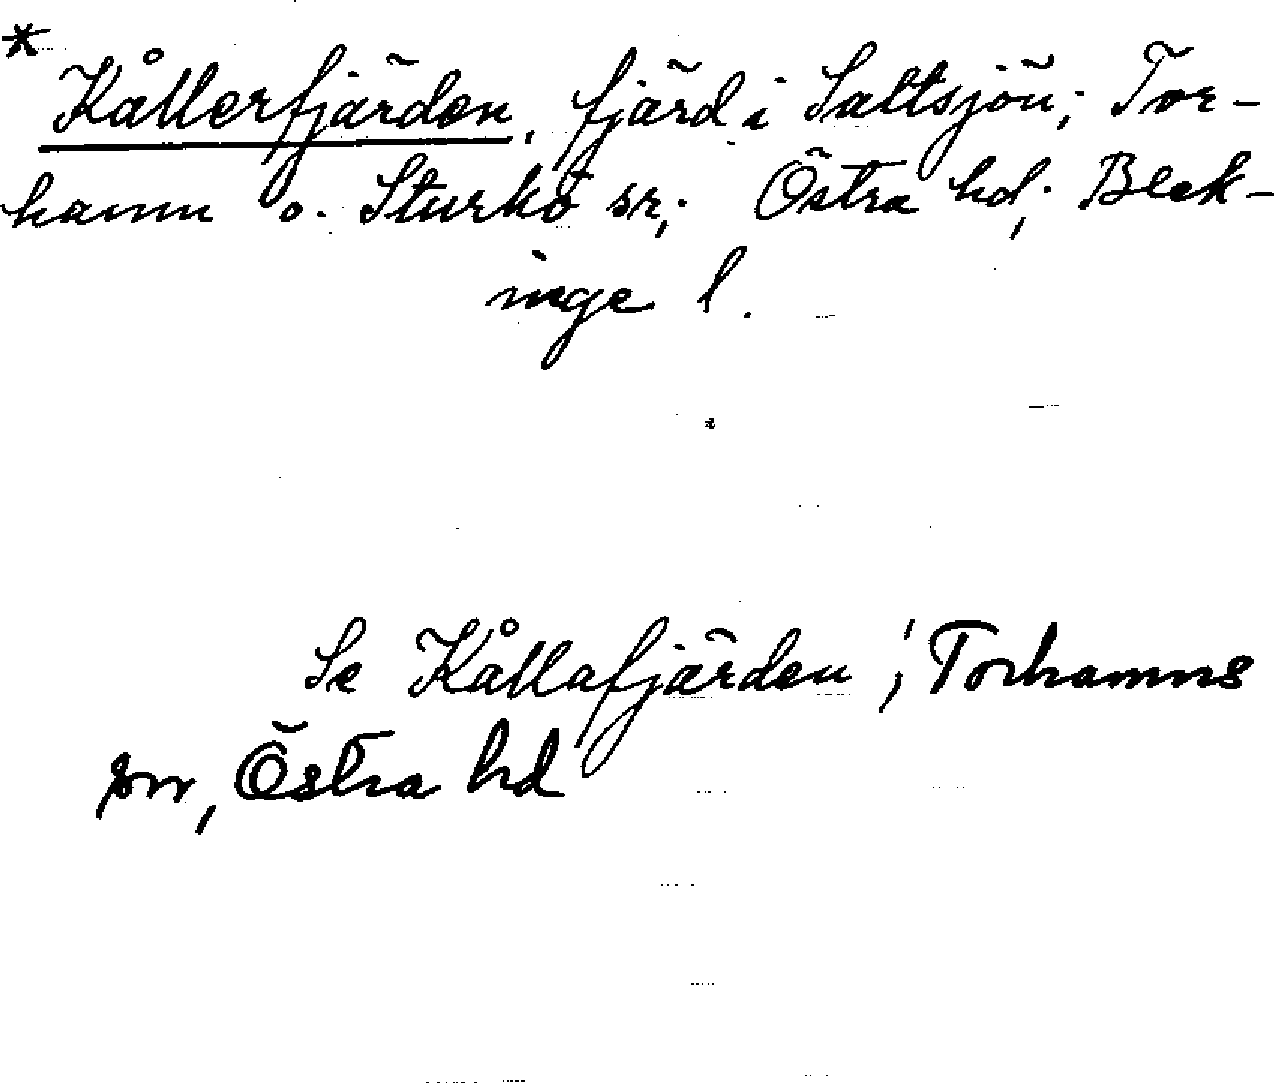 * Kållerfjärden, fjärd i Saltsjön; Tor-
hamn o. Sturkö sr; Östra hd; Blek-
inge l.
Se Kållafjärden, i Torhamns
sn, Östra hd